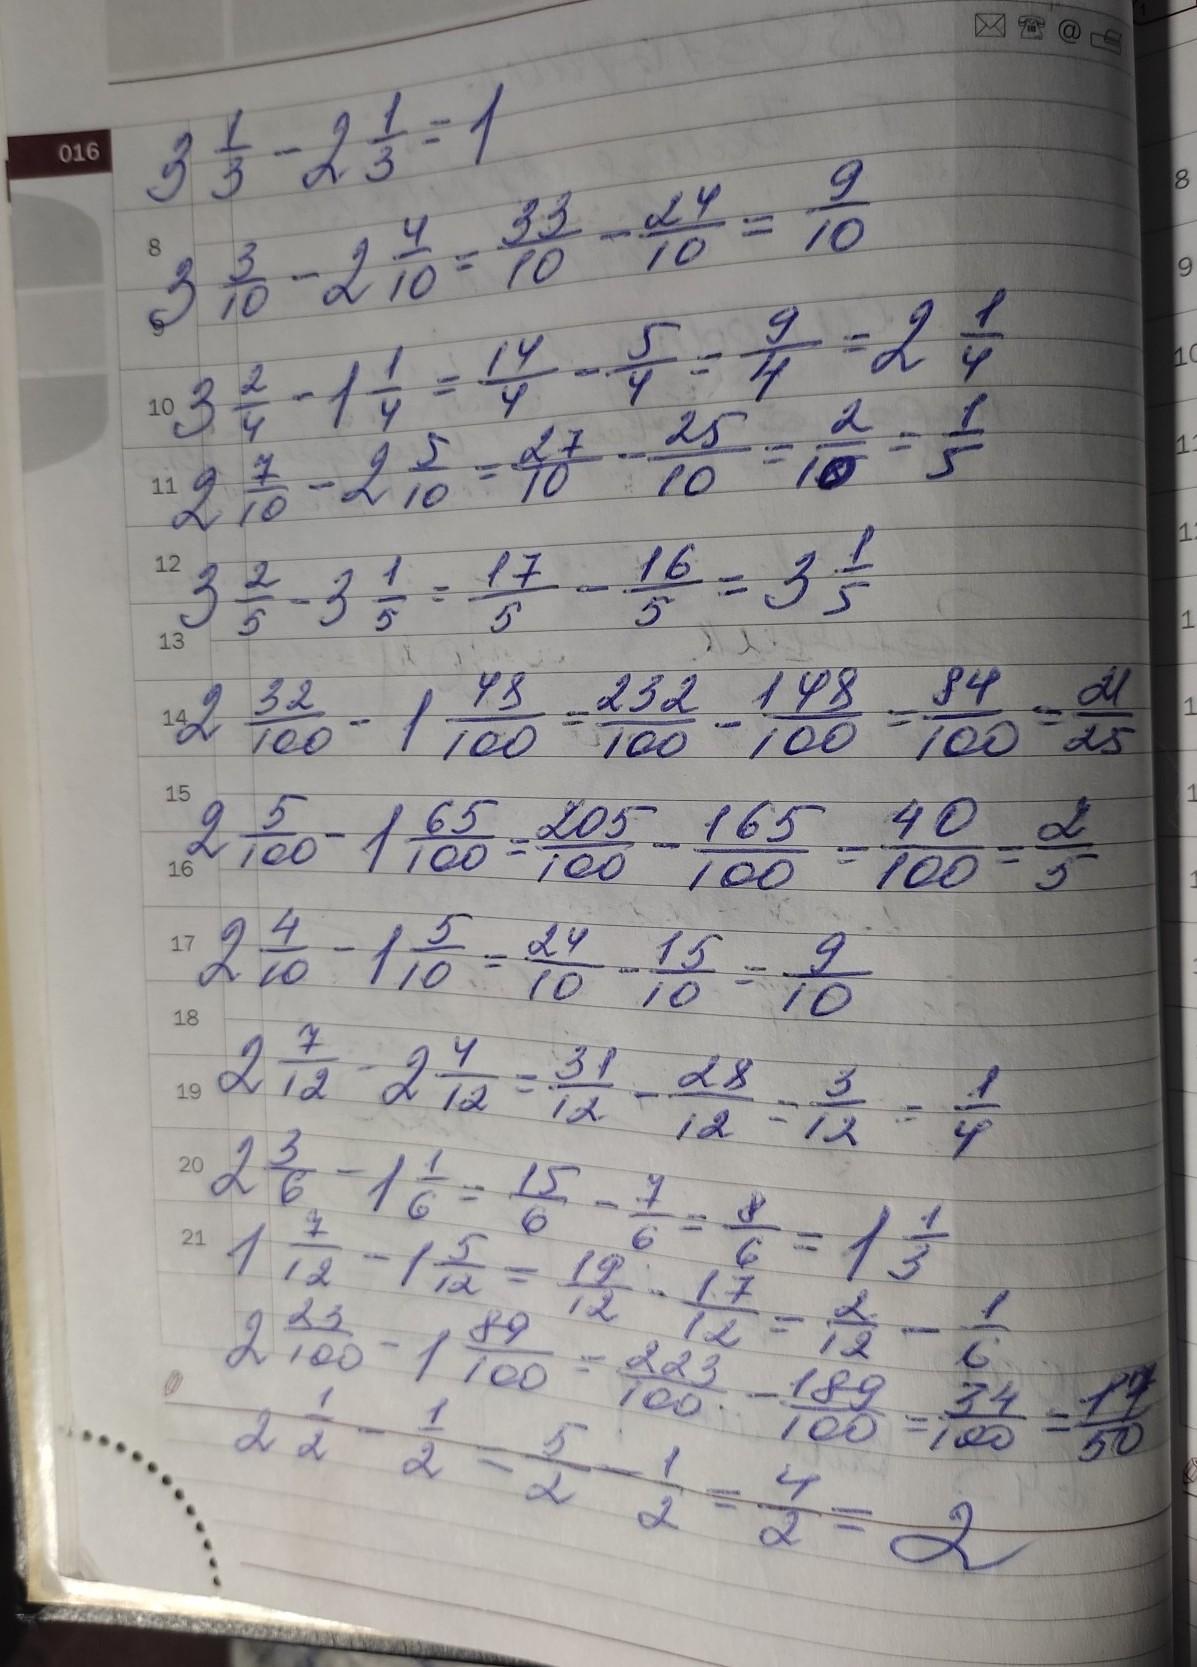 @
016
3 1/3 - 2 1/3 = 1
8
3 3/10 - 2 4/10 = 33/10 - 24/10 = 9/10
9
3 2/4 - 1 1/4 = 14/4 - 5/4 = 9/4 = 2 1/4
10
2 7/10 - 2 5/10 = 27/10 - 25/10 = 2/10 = 1/5
11
12
3 2/5 - 3 1/5 = 17/5 - 16/5 = 3 1/5
13
2 32/100 - 1 48/100 = 232/100 - 148/100 = 84/100 = 21/25
14
15
2 5/100 - 1 65/100 = 205/100 - 165/100 = 40/100 = 2/5
16
2 4/10 - 1 5/10 = 24/10 - 15/10 = 9/10
17
18
2 7/12 - 2 4/12 = 31/12 - 28/12 = 3/12 = 1/4
19
2 3/6 - 1 1/6 = 15/6 - 7/6 = 8/6 = 1 1/3
20
1 7/12 - 1 5/12 = 19/12 - 17/12 = 2/12 - 1/6
21
2 23/100 - 1 89/100 = 223/100 - 189/100 = 34/100 = 17/50
2 1/2 - 1/2 = 5/2 - 1/2 = 4/2 = 2
8
9